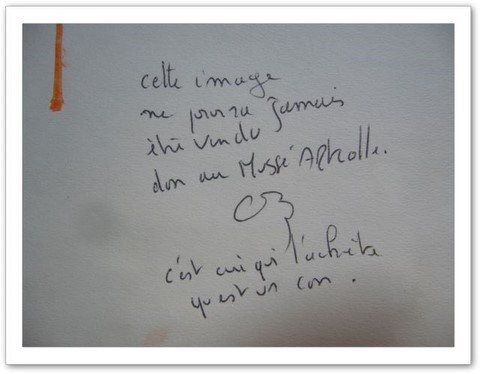 cette image
ne pourra jamais
être vendu
don au Mussé Aptcolle.
c'est cui qui l'achète
qu est un con.